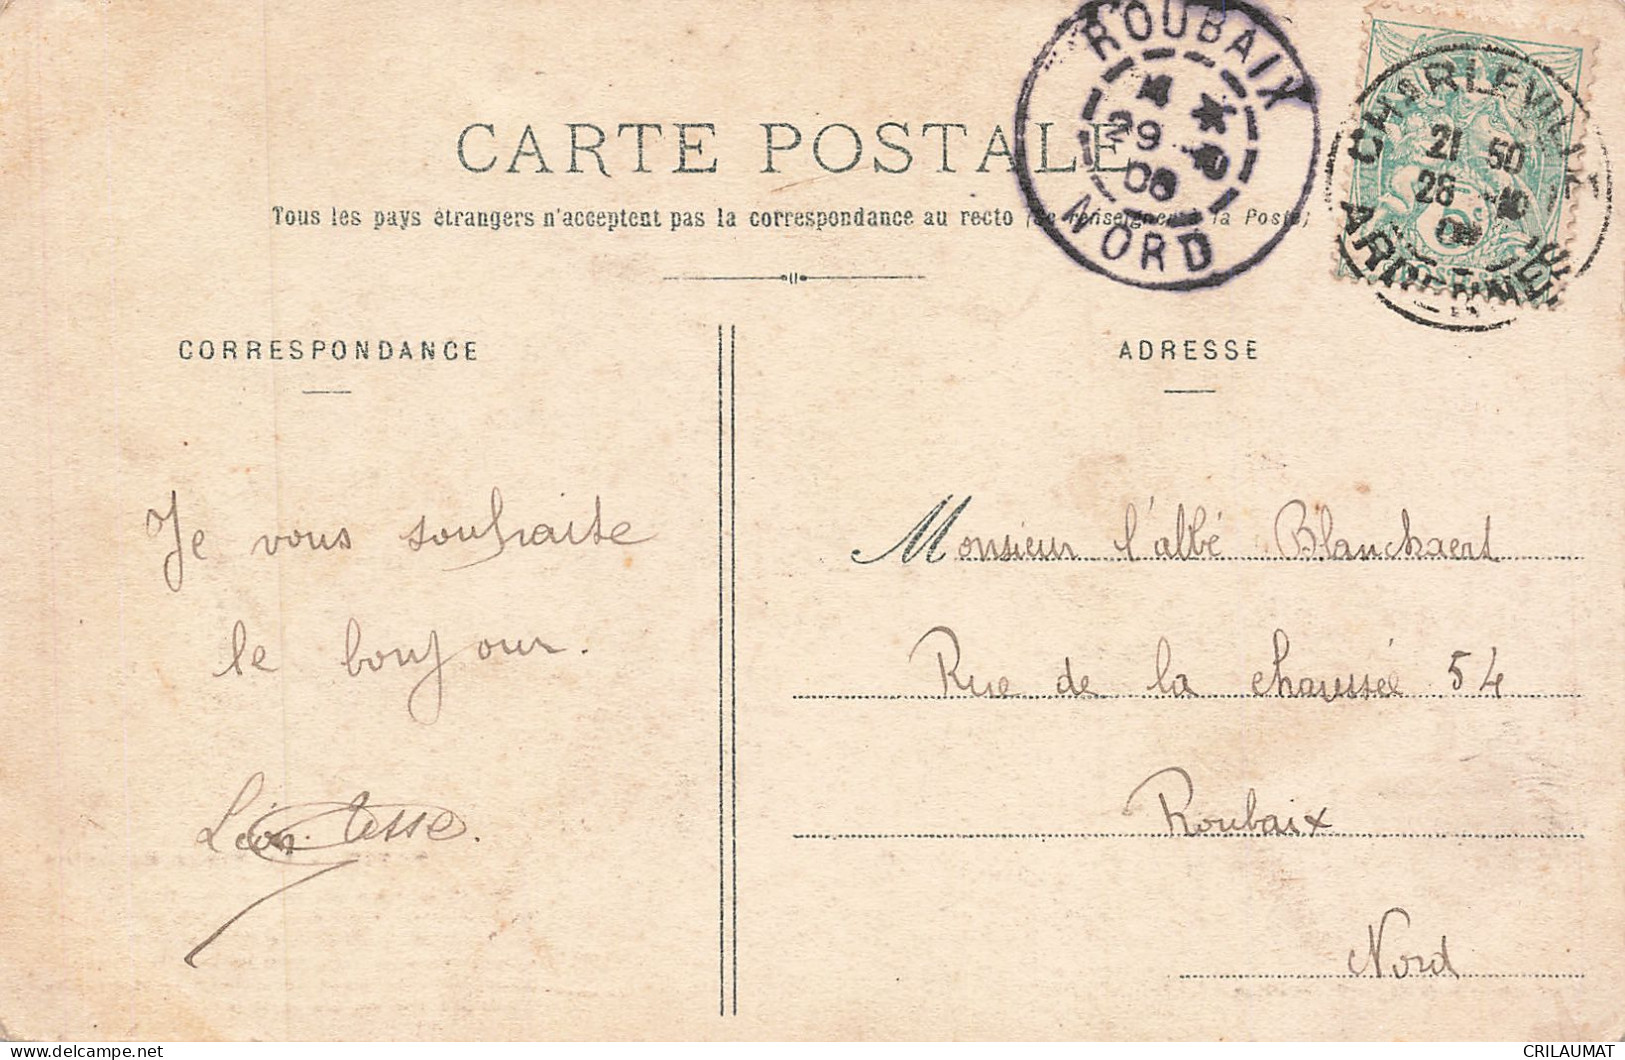 CARTE POSTALE
Tous les pays étrangers n'acceptent pas la correspondance au recto (Se renseigner à la Poste)
ROUBAIX
29
NORD
CHARLEVILLE
21 50
28
ARDENNES
CORRESPONDANCE
ADRESSE
Je vous souhaite
le bonjour.
Léon Tesse.
Monsieur l'abbé Blanckaert
Rue de la chaussée 54
Roubaix
Nord
delcampe.net
CRILAUMAT